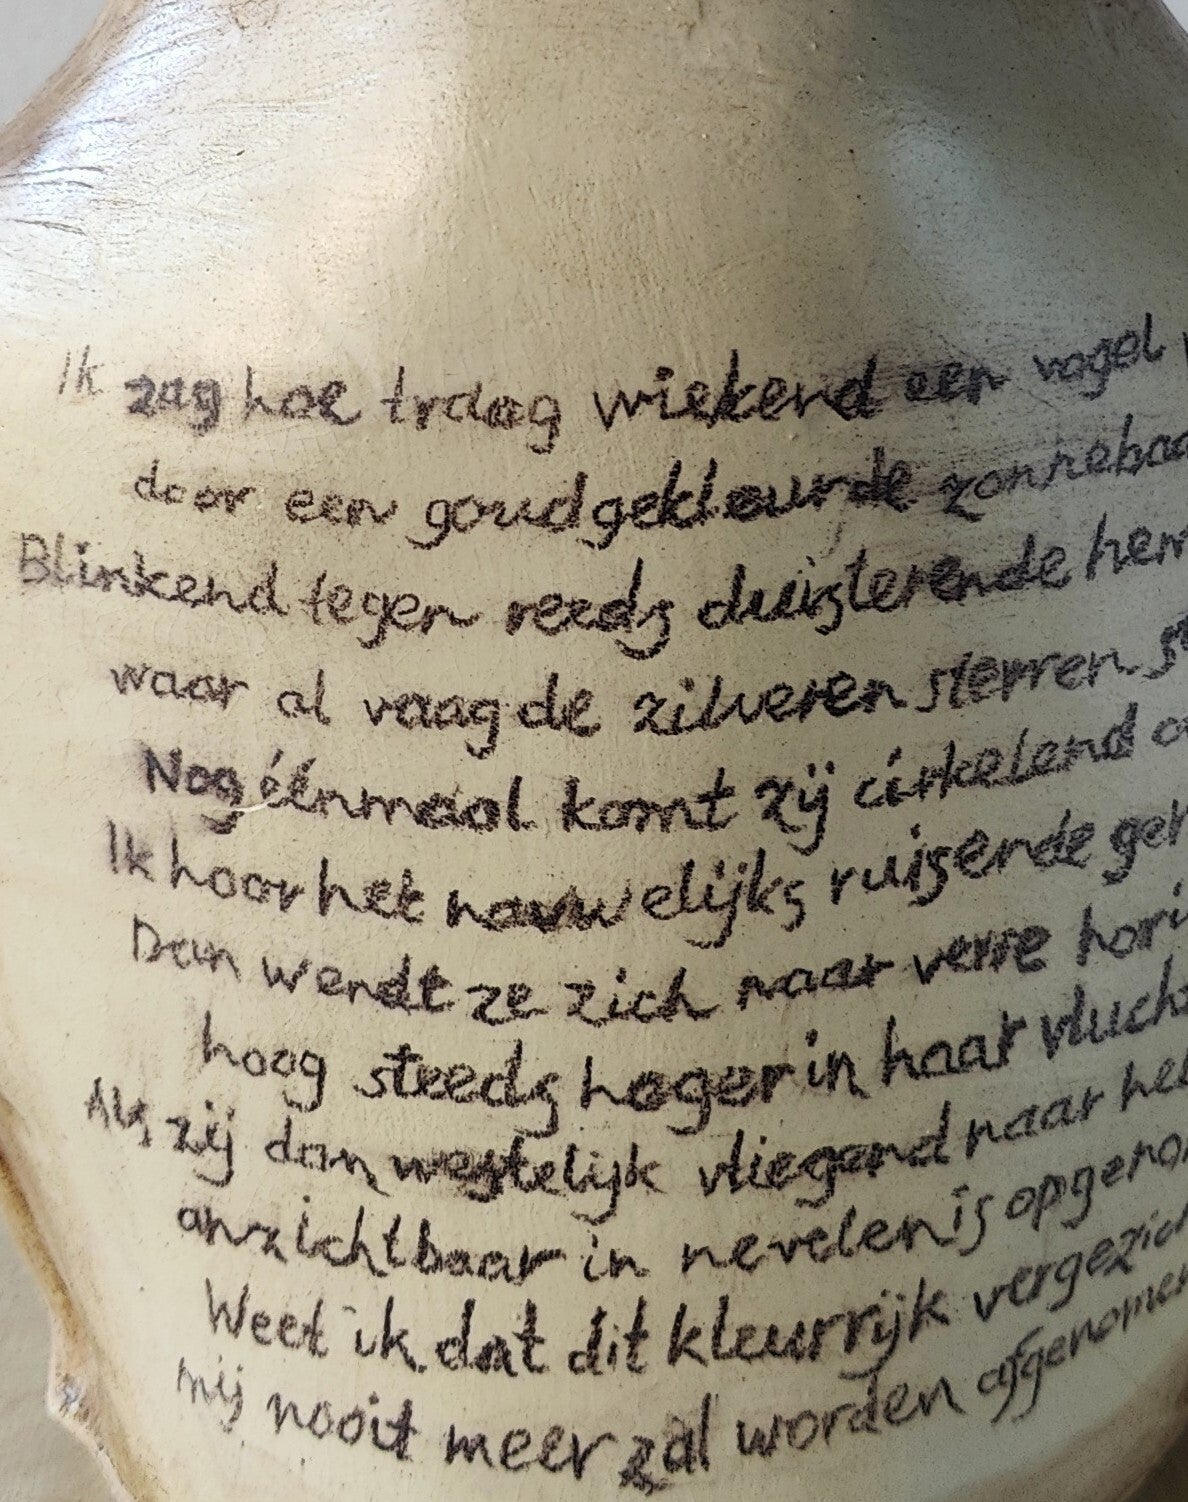 Ik zag hoe traag wiekend een vogel
door een goudgekleurde zonnebaa
Blinkend tegen reeds duisterende hem
waar al vaag de zilveren sterren st
Nog éénmaal komt zij cirkelend o
Ik hoor het nauwelijks ruisende gel
Dan wendt ze zich naar verre hori
hoog steeds hoger in haar vlucht
Als zij dan westelijk vliegend naar het
onzichtbaar in nevelen is opgeno
Weet ik dat dit kleurrijk vergezich
mij nooit meer zal worden afgenomen